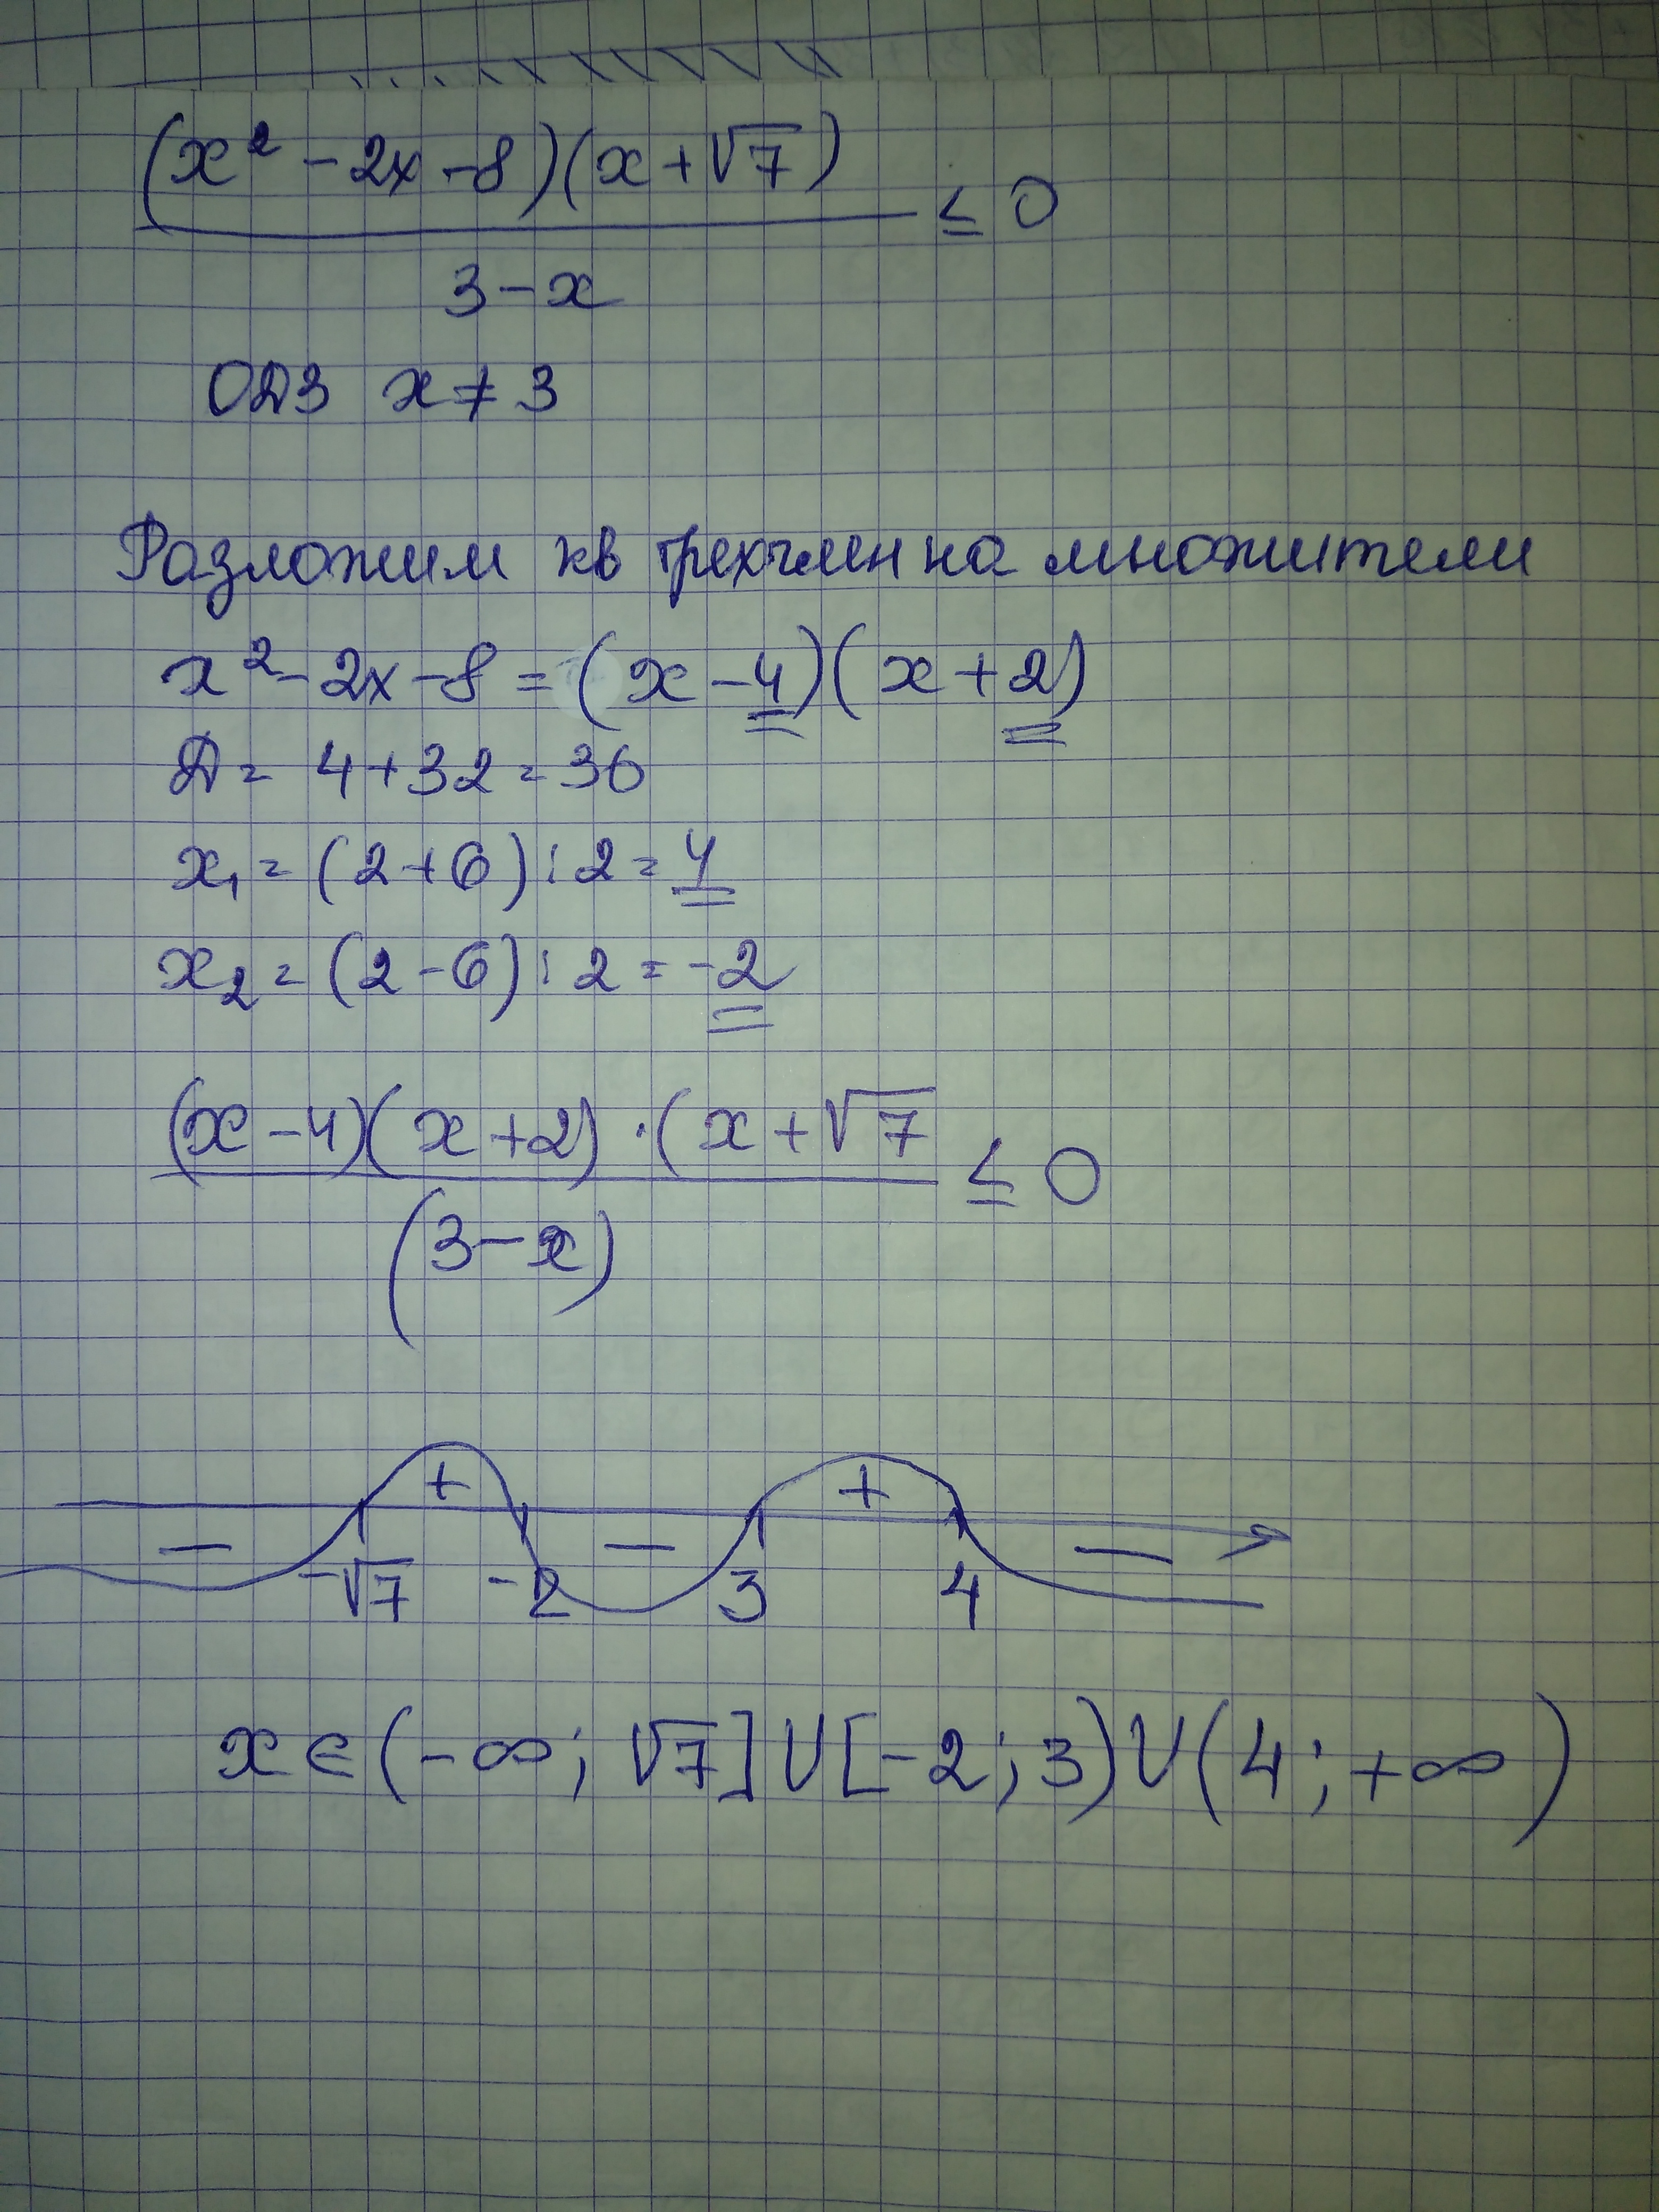 (x² - 2x - 8)(x + √7)
≤ 0
3 - x
ОДЗ x ≠ 3
Разложим кв трехчлен на множители
x² - 2x - 8 = (x - 4)(x + 2)
Д = 4 + 32 = 36
x₁ = (2 + 6) : 2 = 4
x₂ = (2 - 6) : 2 = -2
(x - 4)(x + 2) · (x + √7
≤ 0
(3 - x)
+ +
- - -
-√7 -2 3 4
x ∈ (-∞; √7] U [-2; 3) U (4; +∞)